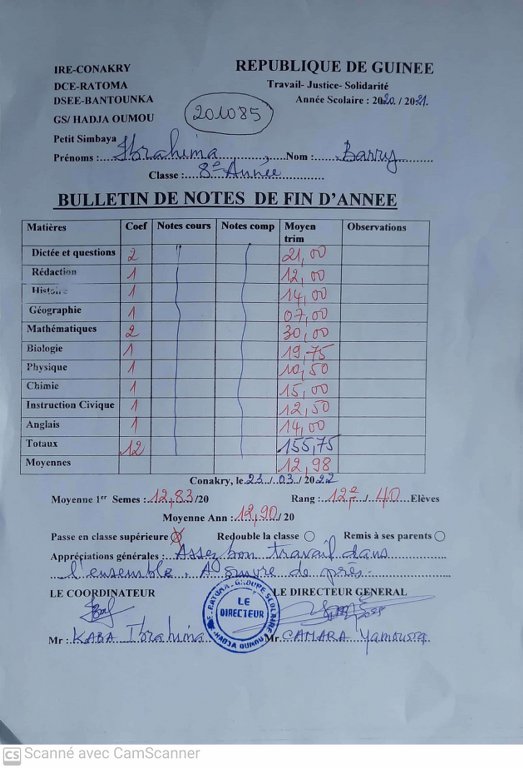 IRE-CONAKRY
DCE-RATOMA
DSEE-BANTOUNKA
GS/ HADJA OUMOU
Petit Simbaya
REPUBLIQUE DE GUINEE
Travail- Justice- Solidarité
Année Scolaire : 2020 / 2021.
201085
Prénoms : Ibrahima Nom : Barry
Classe : 8e Année
BULLETIN DE NOTES DE FIN D'ANNEE
Matières Coef Notes cours Notes comp Moyen trim Observations
Dictée et questions 2 21,00
Rédaction 1 12,00
Histoire 1 14,00
Géographie 1 07,00
Mathématiques 2 30,00
Biologie 1 19,75
Physique 1 10,50
Chimie 1 15,00
Instruction Civique 1 12,50
Anglais 1 14,00
Totaux 12 155,75
Moyennes 12,98
Conakry, le 23 / 03 / 2022
Moyenne 1er Semes : 12,83 /20 Rang : 12e / 40 Elèves
Moyenne Ann : 12,90 / 20
Passe en classe supérieure Redouble la classe Remis à ses parents
Appréciations générales : Assez bon travail dans
l'ensemble. A suivre de près.
LE COORDINATEUR LE DIRECTEUR GENERAL
LE DIRECTEUR
Mr : KABA Ibrahima Mr CAMARA Yamoussa
CS Scanné avec CamScanner